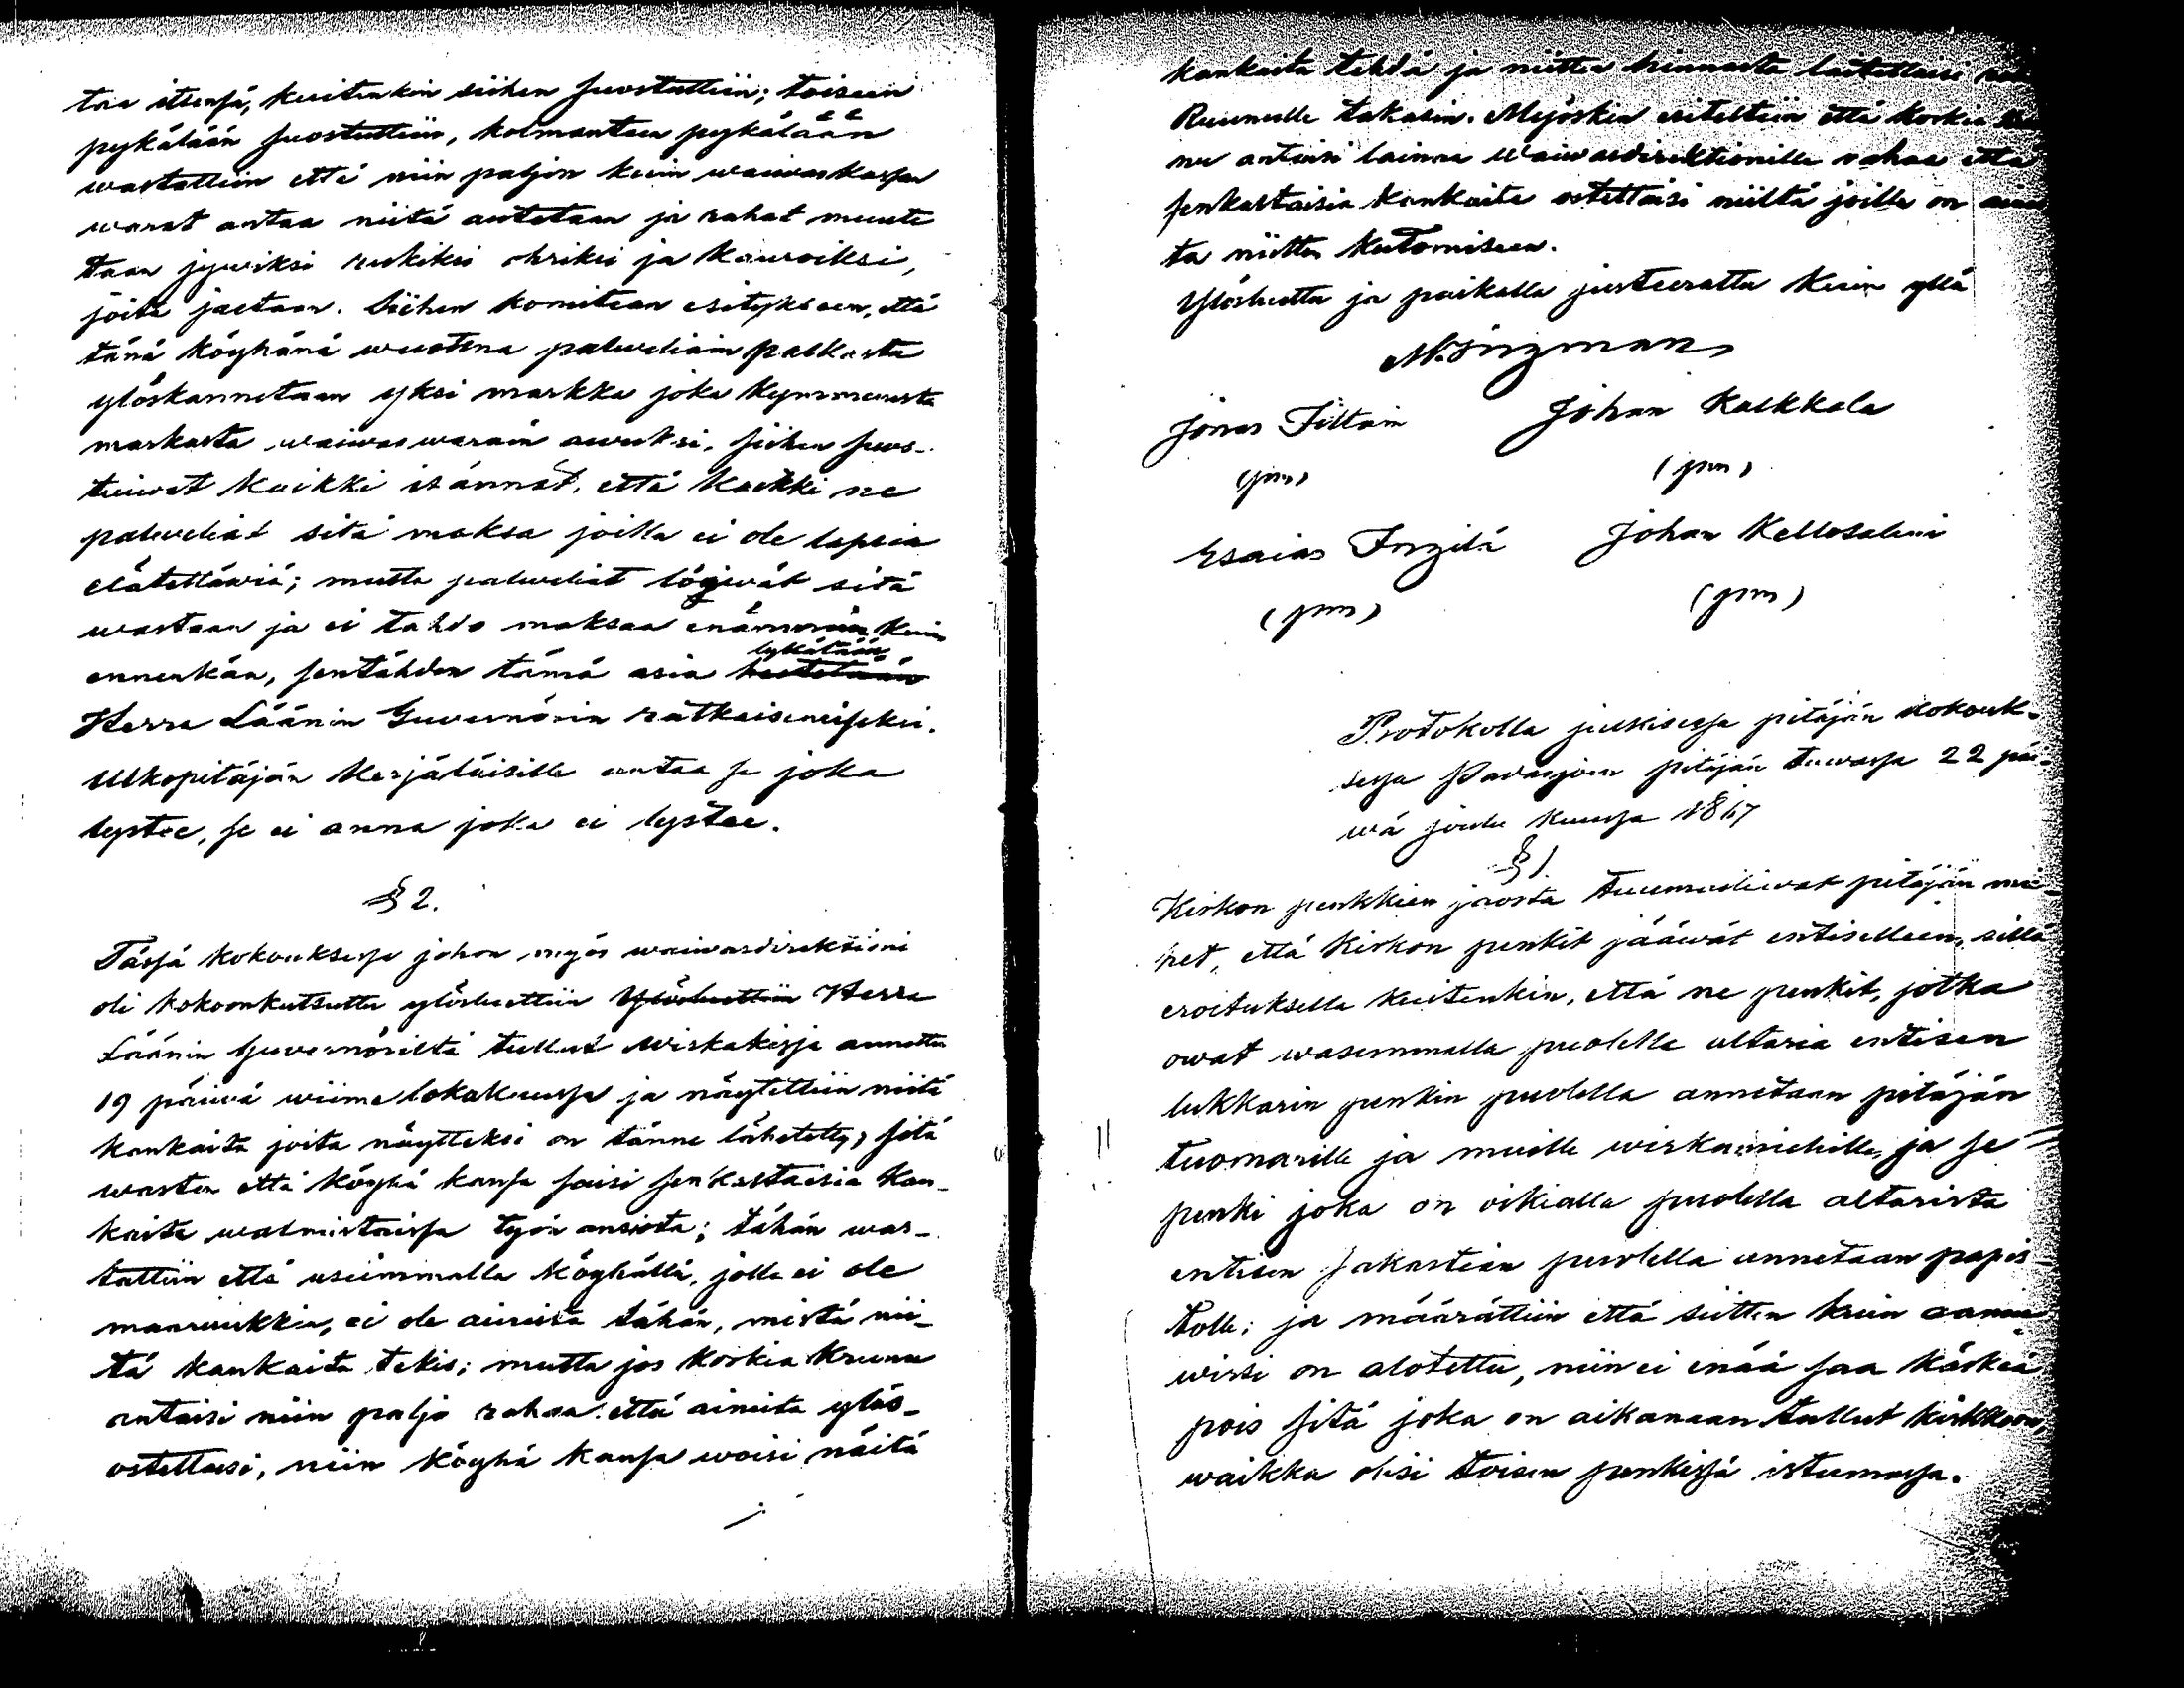 taa itsensä, kuitenkin siihen suostuttiin; toiseen
pykälään suostuttiin, kolmanteen pykälään
wastattiin että niin paljon kuin waiwaskassan
warat antaa niitä autetaan ja rahat muute
taan jywiksi rukiiksi ohriksi ja kauroiksi,
joita jaetaan. Siihen komitean esitykseen, että
tänä köyhänä wuotena palweliain palkasta
ylöskannetaan yksi markka joka kymmenestä
markasta waiwaswarain awuksi, siihen suos-
tuiwat kaikki isännät, että kaikki ne
palweliat sitä maksa joilla ei ole lapsia
elätettäwiä; mutta palweliat löyiwät sitä
wastaan ja ei tahdo maksaa enämmän kuin
ennenkän, sentähden tämä asia lykätään
Herra Läänin Guvernörin ratkaisemiseksi.
Ulkopitäjän kerjäläisille antaa se joka
lystee, se ei anna joka ei lystee.
§ 2.
Tässä kokouksessa johon myös waiwasdirektioni
oli kokoonkutsuttu ylösluettiin Ylösluettiin Herra
Läänin Guvernöriltä tullut wirkakirja annettu
19 päiwä wiime lokakuussa ja näytettiin niitä
kankaita joita näytteksi on tänne lähetetty, sitä
warten että köyhä kansa saisi senkaltaisia kan-
kaita walmistaissa työn ansiota; tähän was-
tattiin että useimmalla köyhällä, jolla ei ole
maanwiekkia, ei ole aineita tähän, mistä nii-
tä kankaita tekis; mutta jos korkia kruunu
antaisi niin paljo rahaa että aineita ylös-
ostettaisi, niin köyhä kansa woisi näitä
kankaita tehdä ja niitten hinnasta laitettaisi
Ruunulle takasin. Myöskin esiteltiin että korkia
nu antaisi lainna waiwasdirektionille rahaa että
senkaltaisia kankaita ostettaisi niiltä joilla on ainei
ta niitten kutomiseen.
Ylösluettu ja paikalla justeerattu kuin yllä
Jonas Johan Kaikkala
(pm) (pm)
Esaias Johan Kellosalmi
(pm) (pm)
Protokolla julkisessa pitäjän kokouk-
sessa Padasjoen pitäjän tuwassa 22 päi-
wä joulu kuussa 1867
§ 1.
Kirkon penkkien jaosta tuumailiwat pitäjän mie-
het, että kirkon penkit jääwät entiselleen, sillä
eroituksella kuitenkin, että ne penkit, jotka
owat wasemmalla puolella altaria entisen
lukkarin penkin puolella annetaan pitäjän
tuomarille ja muille wirkamiehille, ja se
penki joka on oikialla puolella altarista
entisen sakastian puolella annetaan papis-
tolle; ja määrättiin että siitten kuin aamu
wirsi on alotettu, niin ei enää saa käskeä
pois sitä joka on aikanaan tullut kirkkoon,
waikka olisi toisen penkissä istumassa.